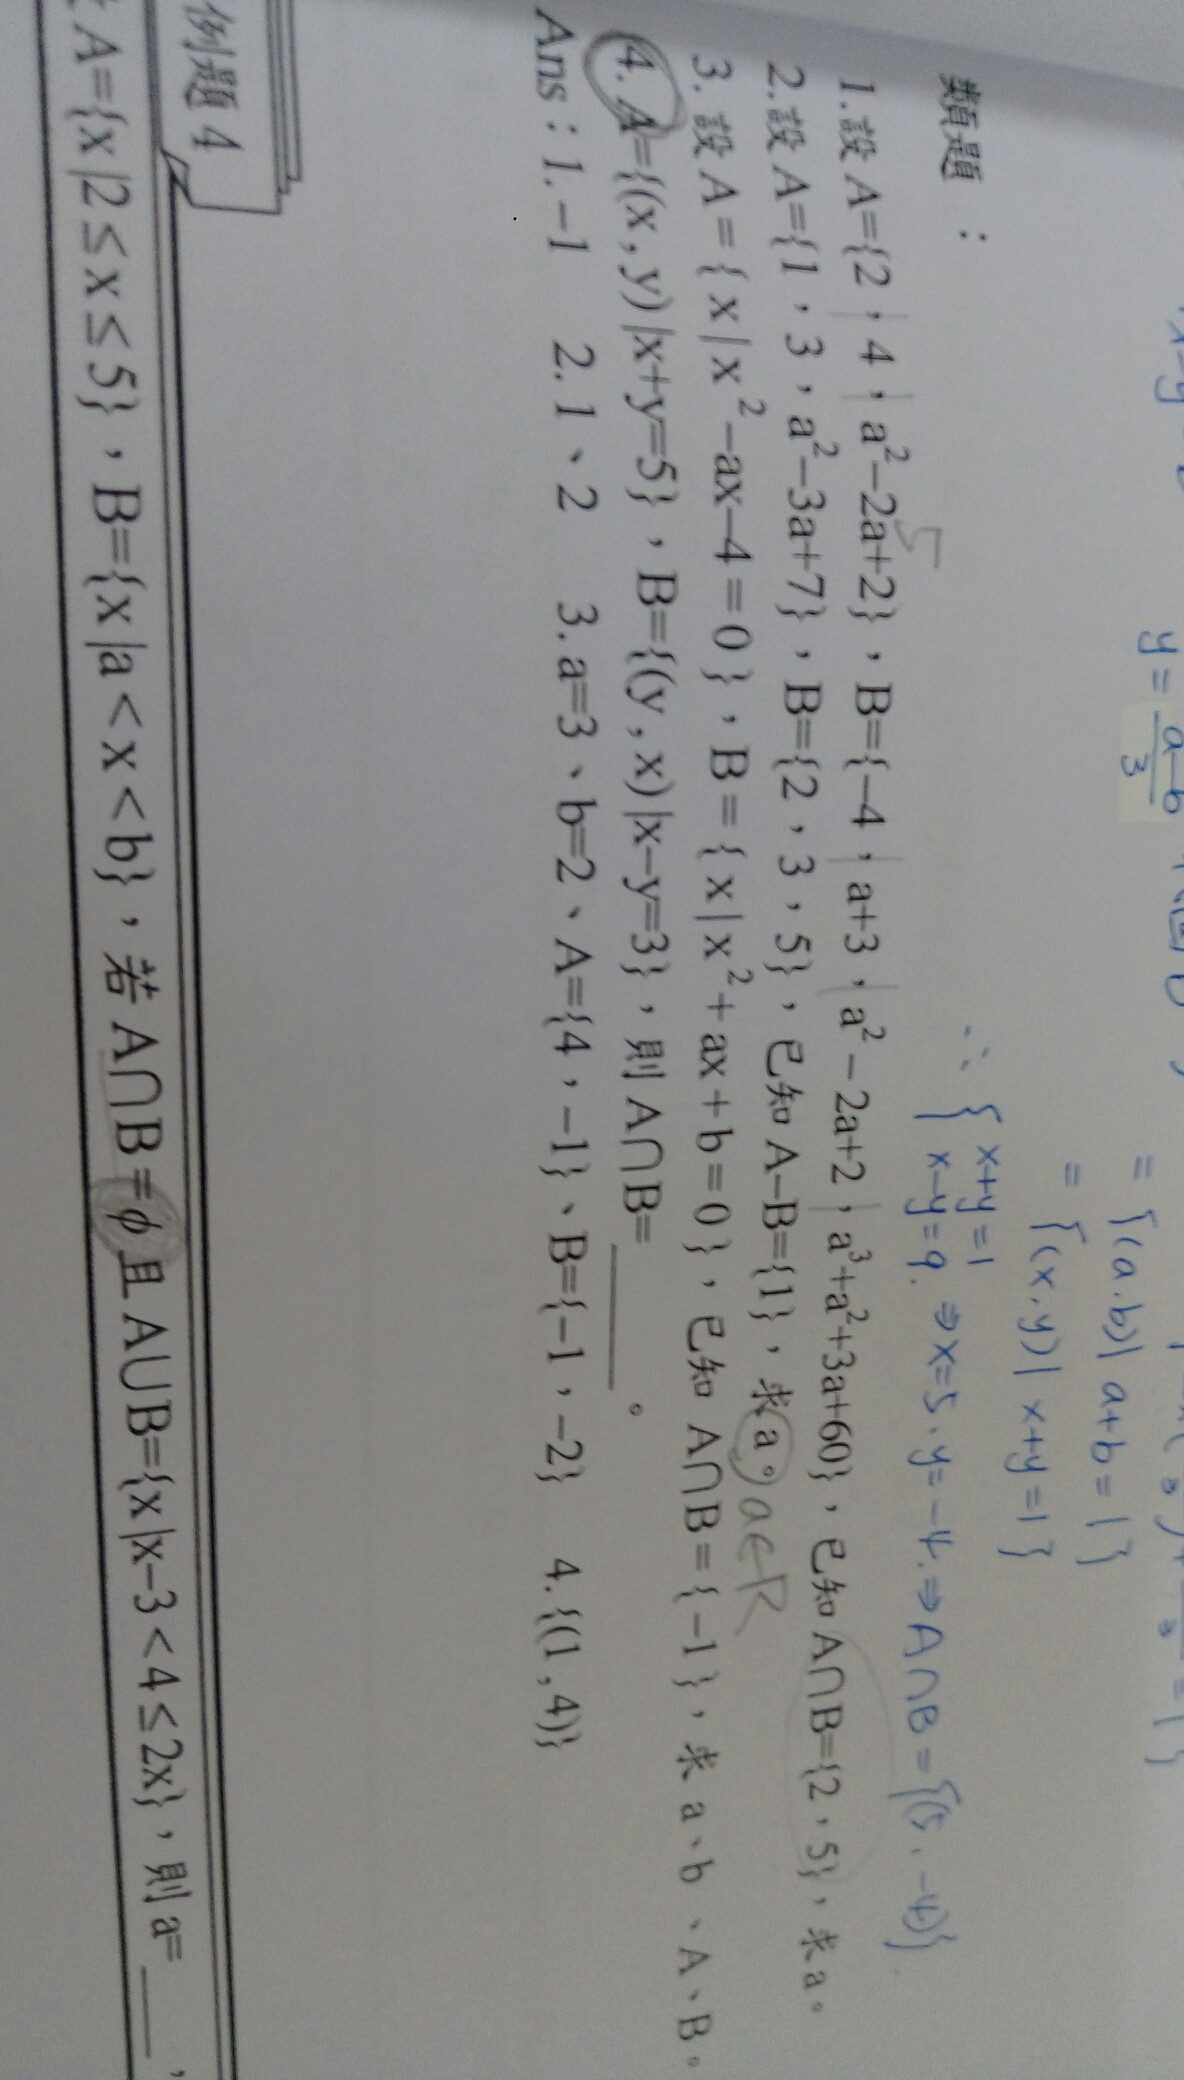 y = a-b/3
= {(a,b)| a+b=1}
= {(x,y)| x+y=1}
∴ { x+y=1
x-y=9. ⇒ x=5、y=-4. ⇒ A∩B={(5,-4)}.
類題：
5
1.設 A={2，4，a²−2a+2}，B={−4，a+3，a²−2a+2，a³+a²+3a+60}，已知 A∩B={2，5}，求 a。
2.設 A={1，3，a²−3a+7}，B={2，3，5}，已知 A−B={1}，求 a。 a∈R
3.設 A={x|x²−ax−4=0}，B={x|x²+ax+b=0}，已知 A∩B={−1}，求 a、b、A、B。
4. A={(x,y)|x+y=5}，B={(y,x)|x−y=3}，則 A∩B=______。
Ans：1.−1 2.1、2 3.a=3、b=2、A={4，−1}、B={−1，−2} 4.{(1,4)}
例題 4
A={x|2≤x≤5}，B={x|a<x<b}，若 A∩B=ϕ 且 A∪B={x|x−3<4≤2x}，則 a=____，